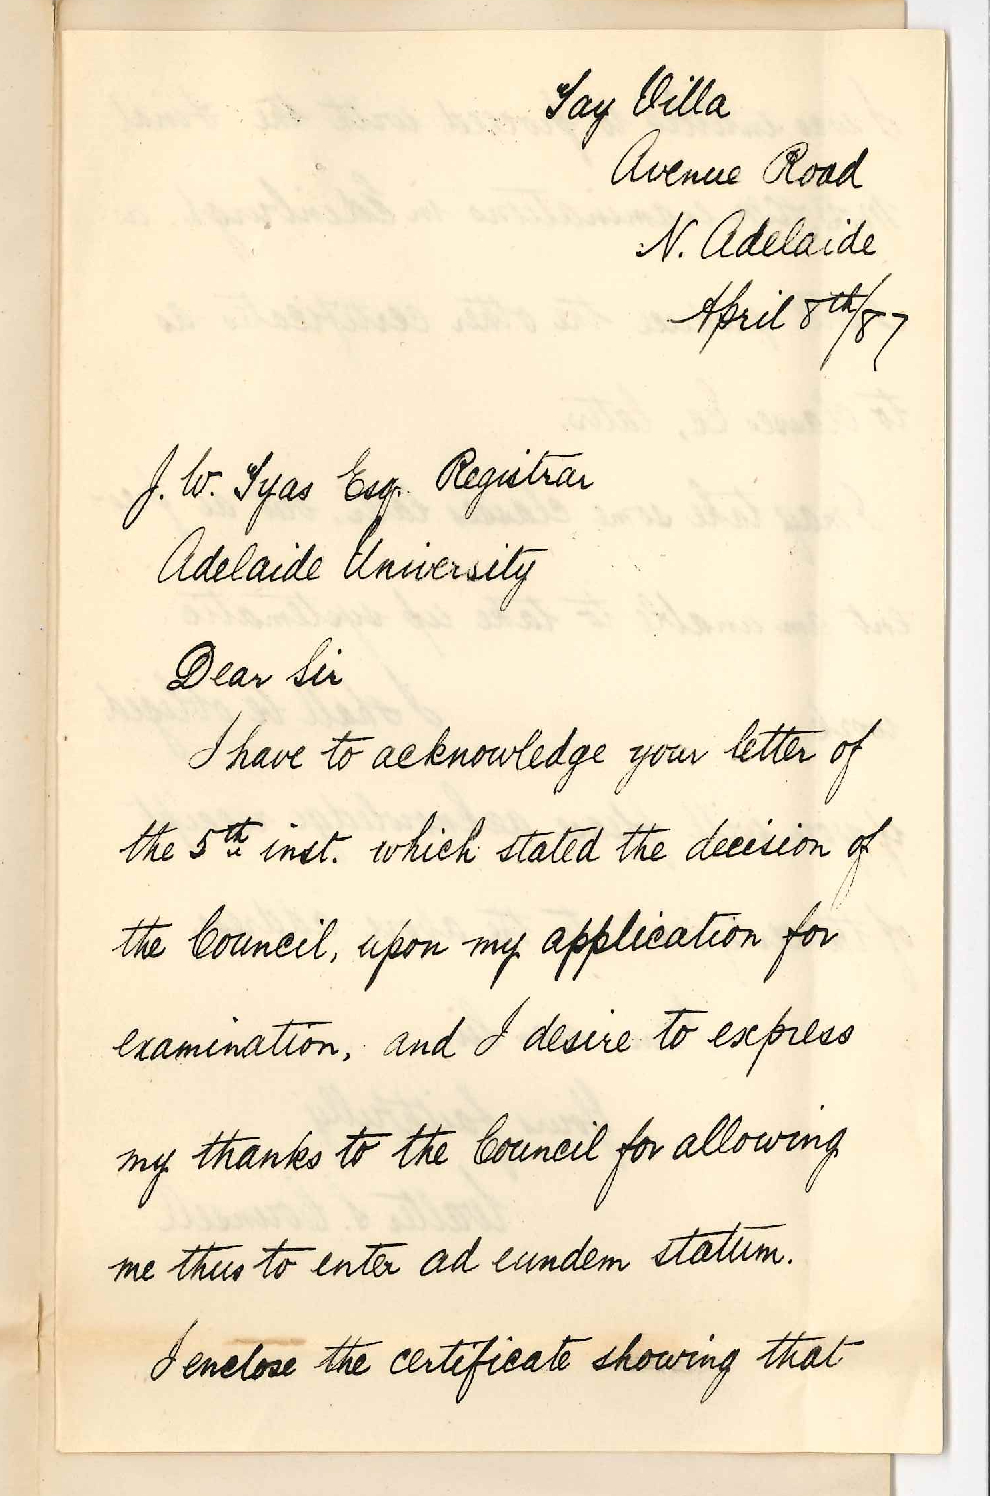 Tay Villa
Avenue Road
N. Adelaide
April 8th/87
J. W. Tyas Esq. Registrar
Adelaide University
Dear Sir
I have to acknowledge your letter of
the 5th inst. which stated the decision of
the Council, upon my application for
examination, and I desire to express
my thanks to the Council for allowing
me thus to enter ad eundem statum.
I enclose the certificate showing that